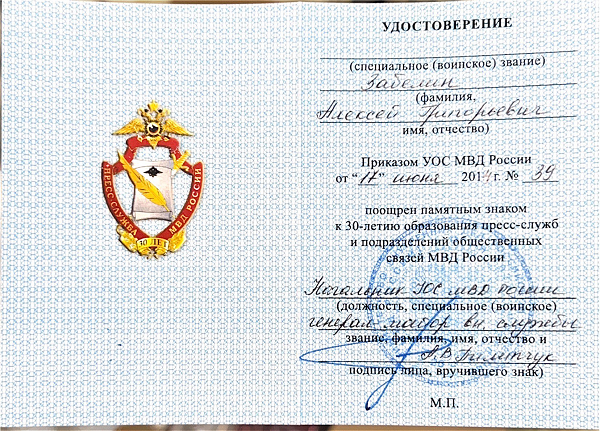 УДОСТОВЕРЕНИЕ
(специальное (воинское) звание)
Забелин
(фамилия,
Алексей Григорьевич
имя, отчество)
Приказом УОС МВД России
от “17” июня 2014 г. № 39
поощрен памятным знаком
к 30-летию образования пресс-служб
и подразделений общественных
связей МВД России
Начальник УОС МВД России
(должность, специальное (воинское)
генерал-майор вн. службы
звание, фамилия, имя, отчество и
А.В.
подпись лица, вручившего знак)
М.П.
ПРЕСС-СЛУЖБА МВД РОССИИ
30 ЛЕТ